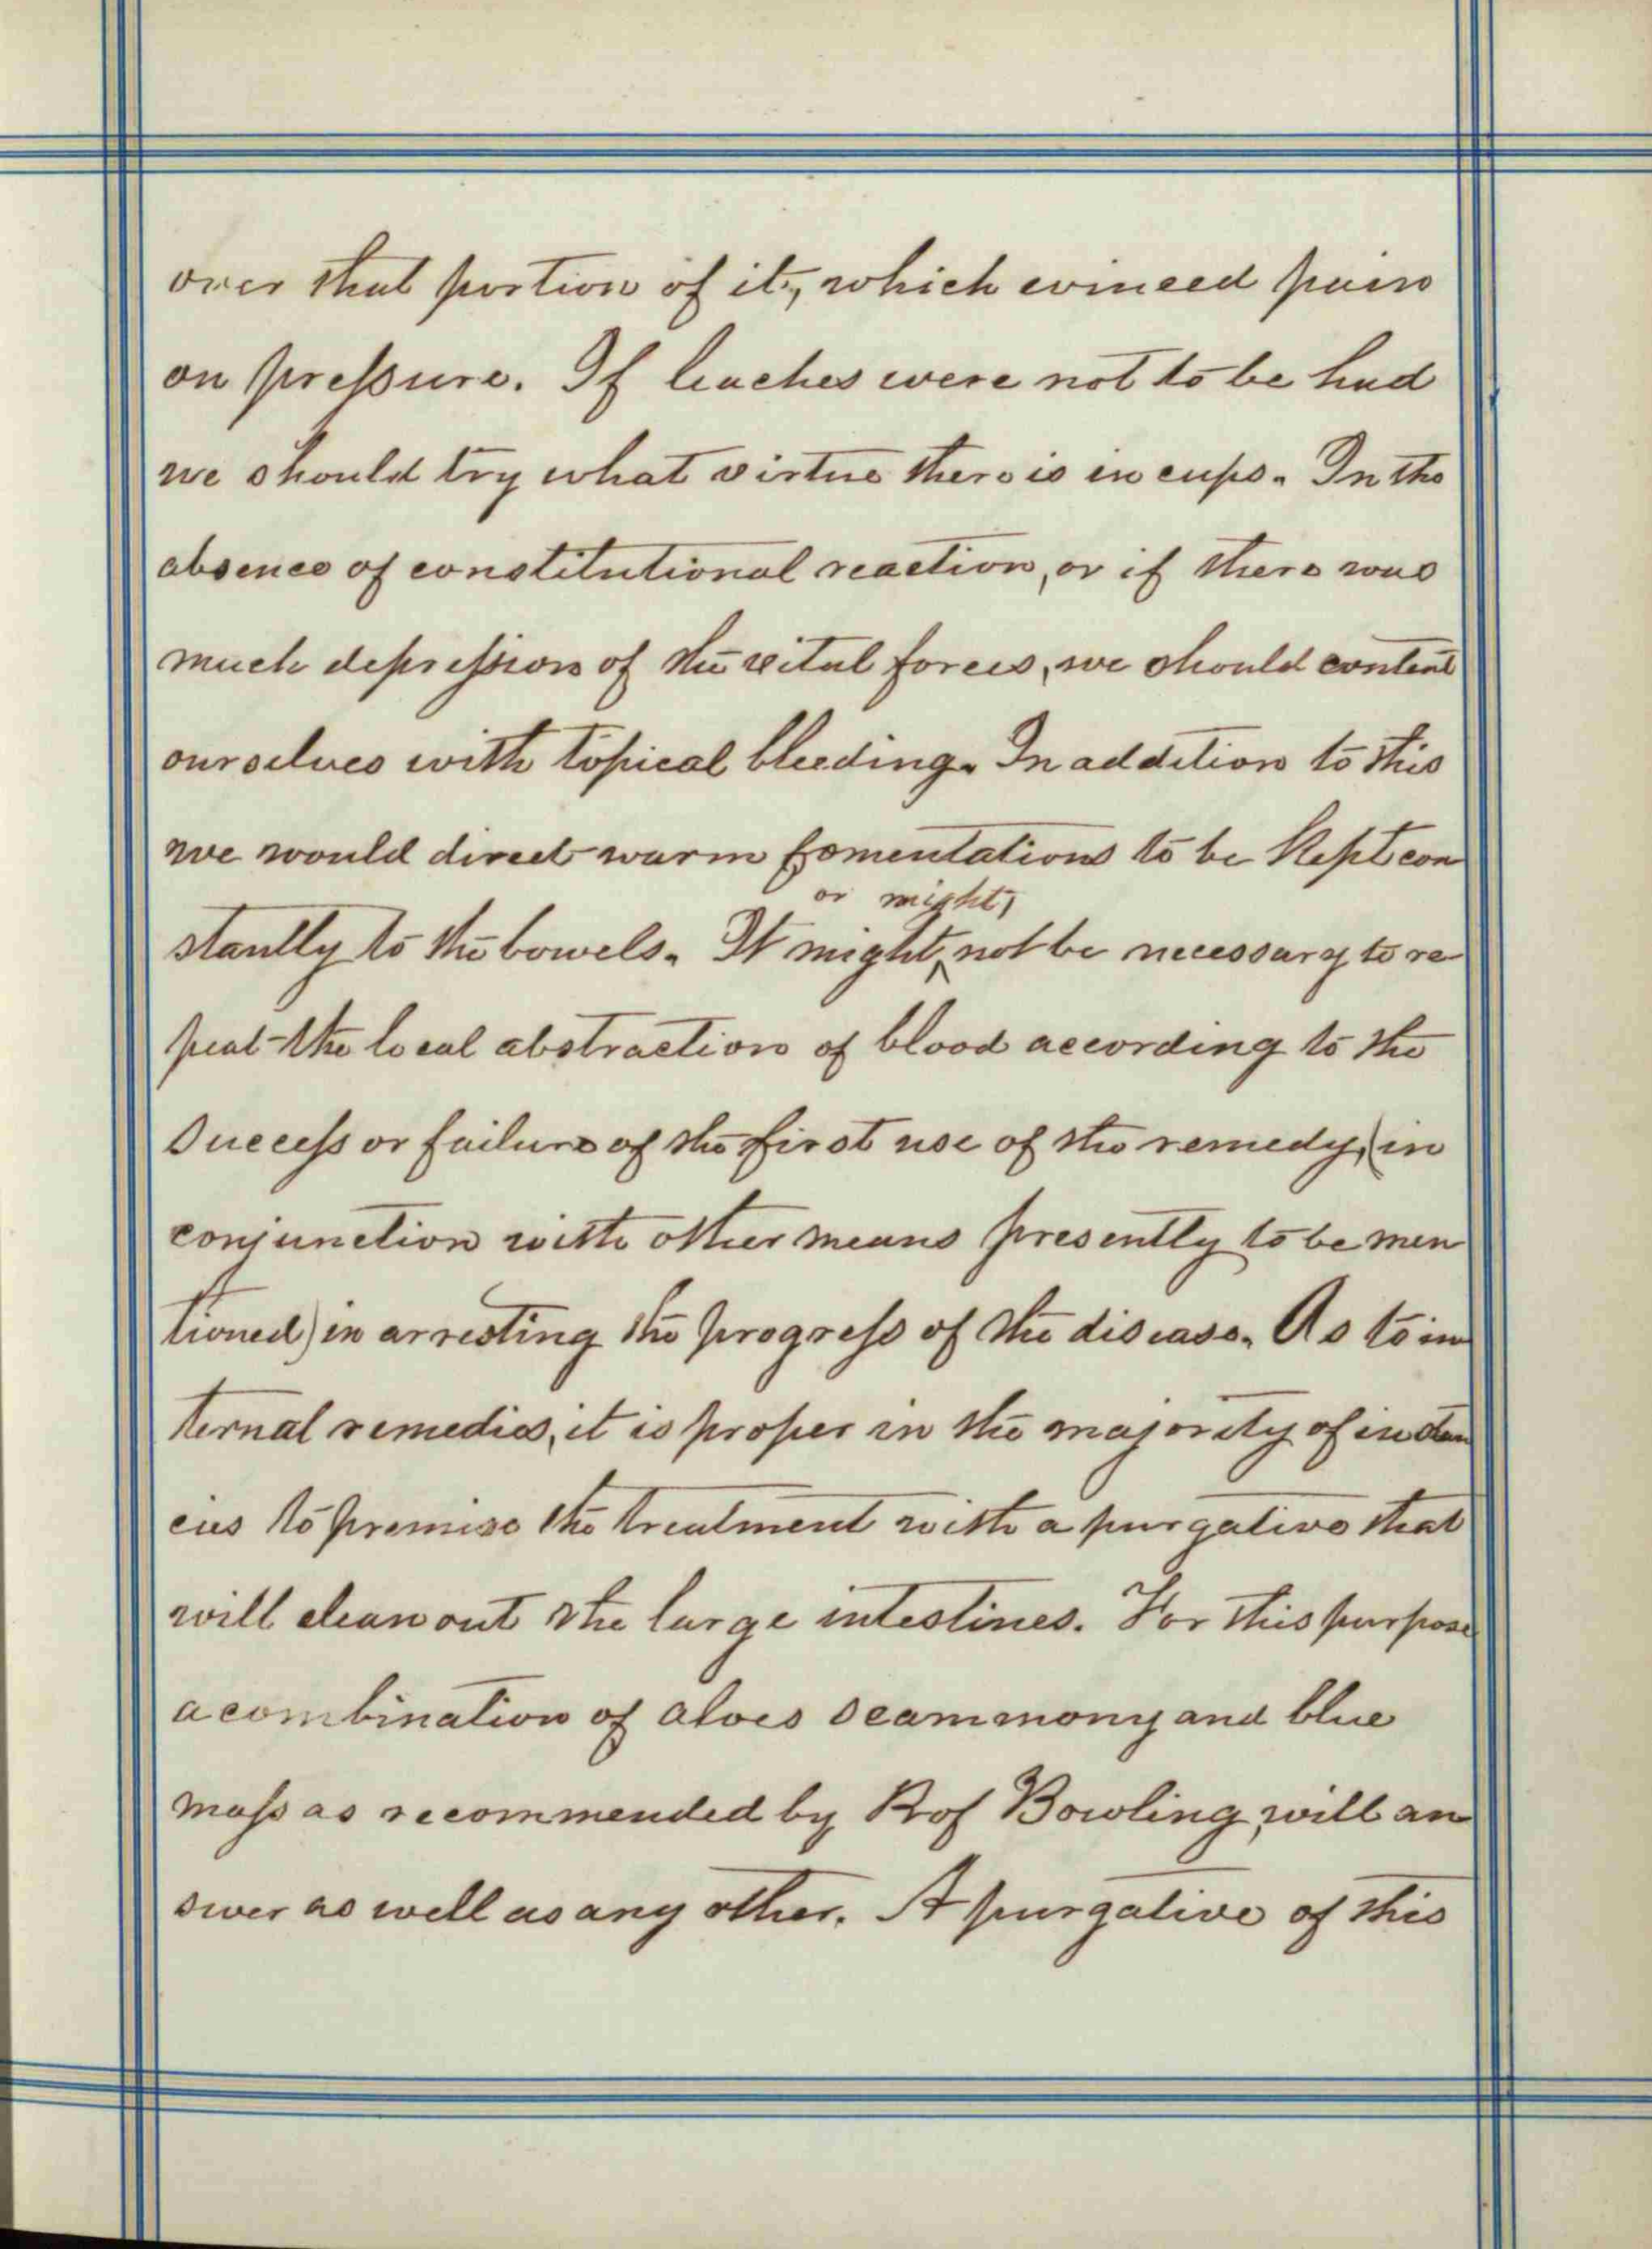 over that portion of it, which evinced pain
on pressure. If leaches were not to be had
we should try what virtue there is in cups. In the
absence of constitutional reaction, or if there was
much depression of the vital forces, we should content
ourselves with topical bleeding. In addition to this
we would direct warm fomentations to be kept con
or might,
stantly to the bowels. It might, not be necessary to re-
peat the local abstraction of blood according to the
success or failure of the first use of the remedy, (in
conjunction with other means presently to be men
tioned) in arresting the progress of the disease. As to in
ternal remedies, it is proper in the majority of instan
cies to premise the treatment with a purgative that
will clean out the large intestines. For this purpose
a combination of aloes scammony and blue
mass as recommended by Prof Bowling, will an
swer as well as any other. A purgative of this